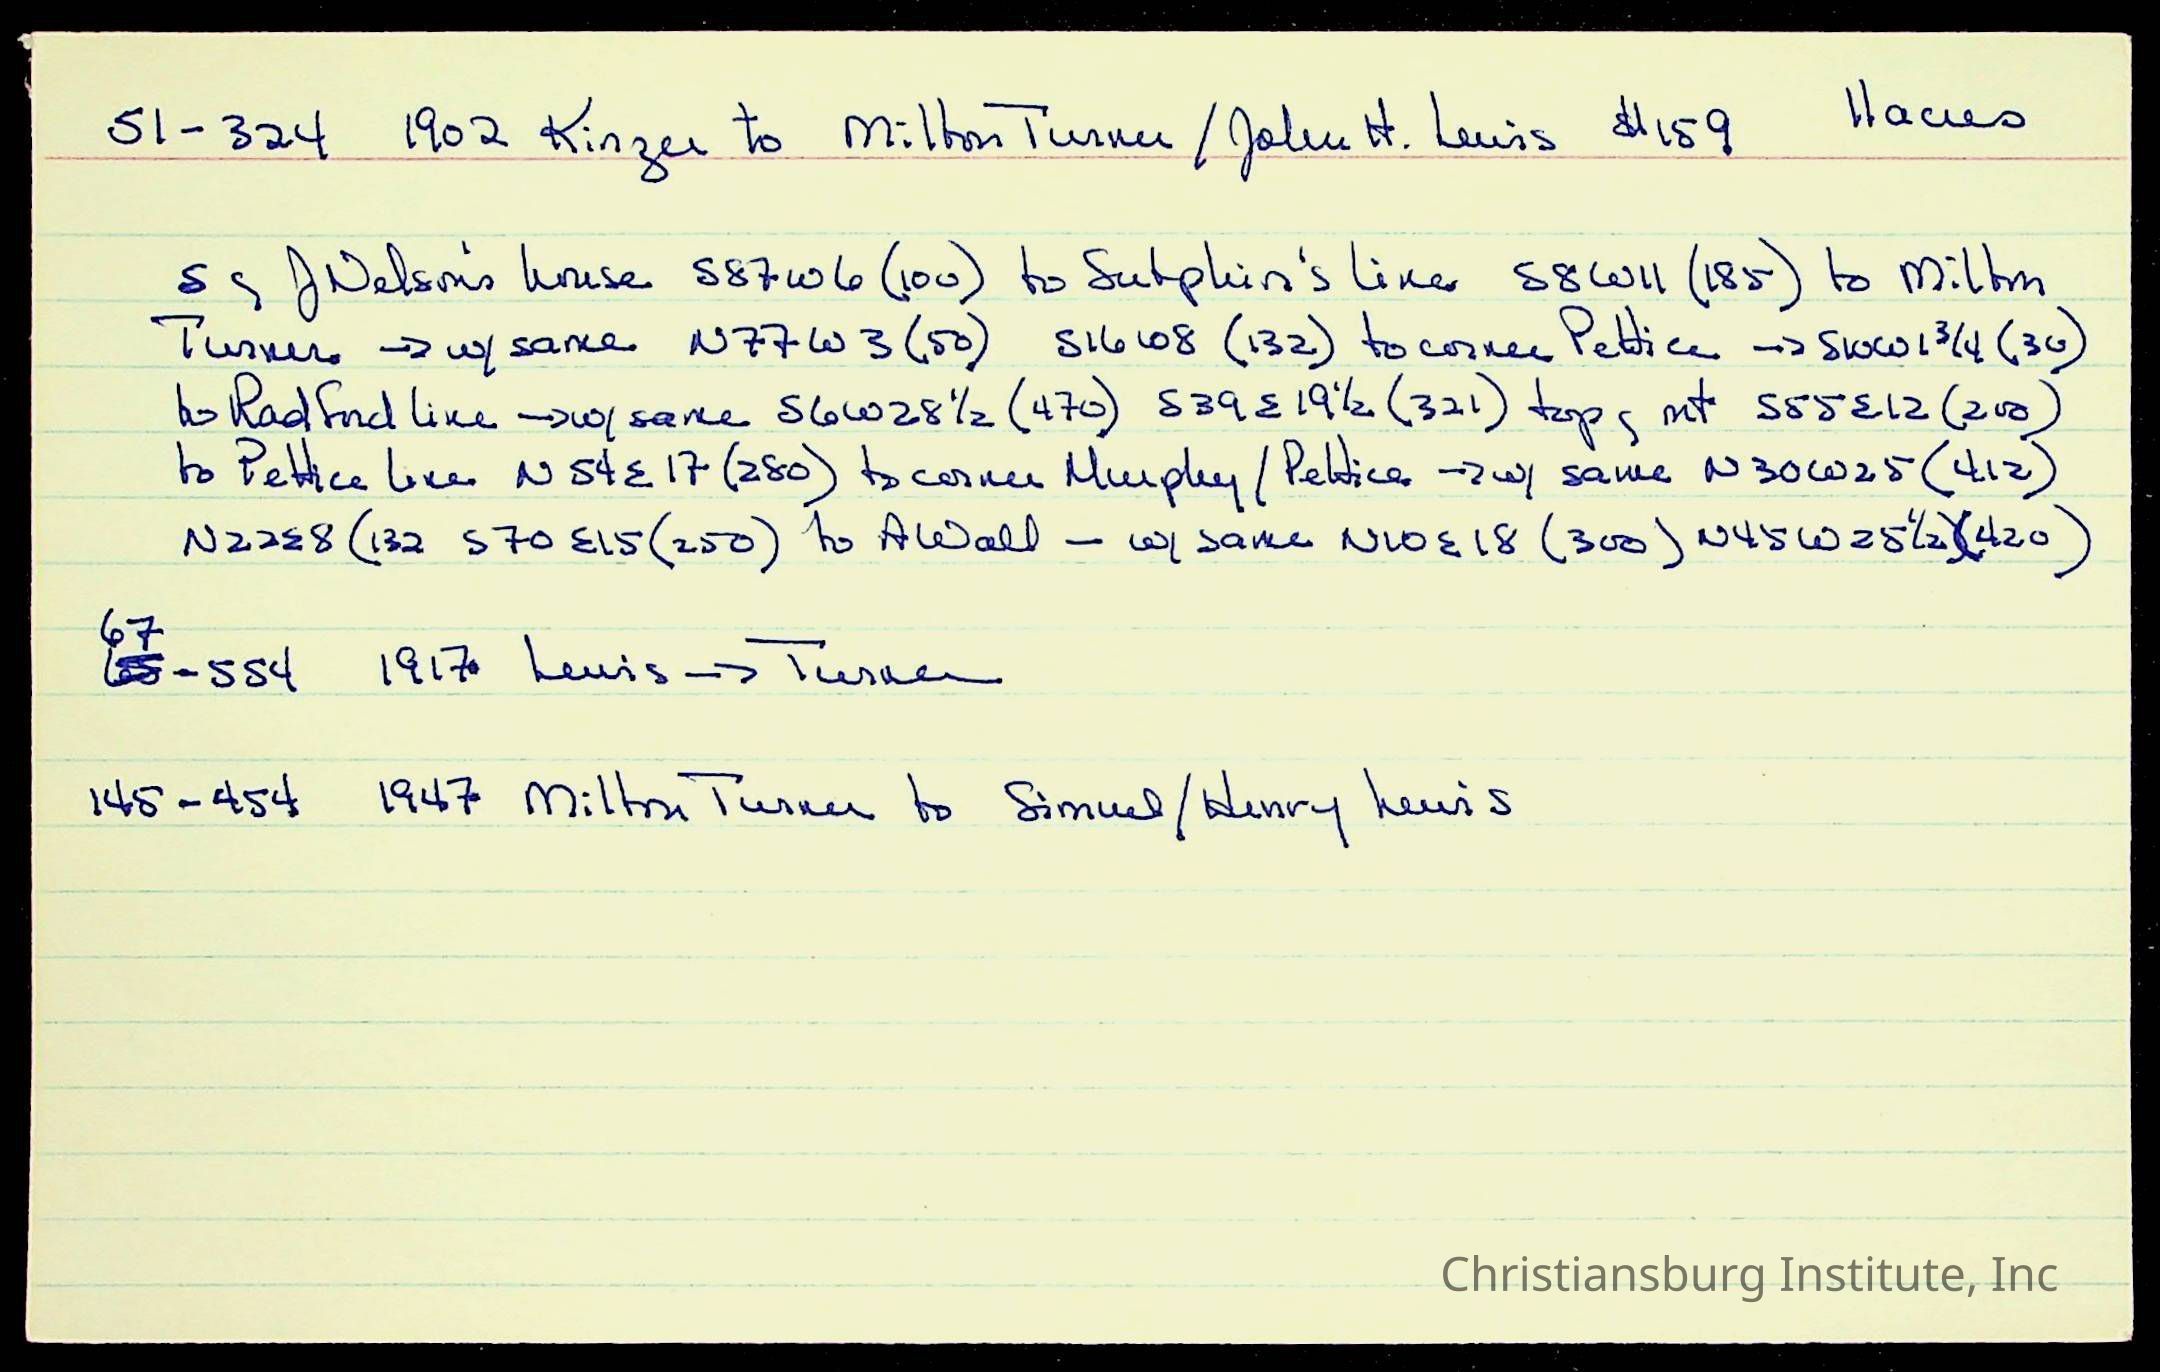 51-324 1902 Kinzer to Milton Turner / John H. Lewis $159 11 acres
S of J Nelson's house S87W6 (100) to Sutphin's line S8W11 (185) to Milton
Turner → w/ same N77W3 (50) S16W8 (132) to corner Pettice → S10W1 3/4 (30)
to Radford line → w/ same S6W28 1/2 (470) S39E19 1/2 (321) top of mt S55E12 (200)
to Pettice line N54E17 (280) to corner Murphy / Pettice → w/ same N30W25 (412)
N22E8 (132 S70E15 (250) to A Wall - w/ same N10E18 (300) N45W25 1/2 (420)
67
-554 1917 Lewis → Turner
145-454 1947 Milton Turner to Simuel / Henry Lewis
Christiansburg Institute, Inc